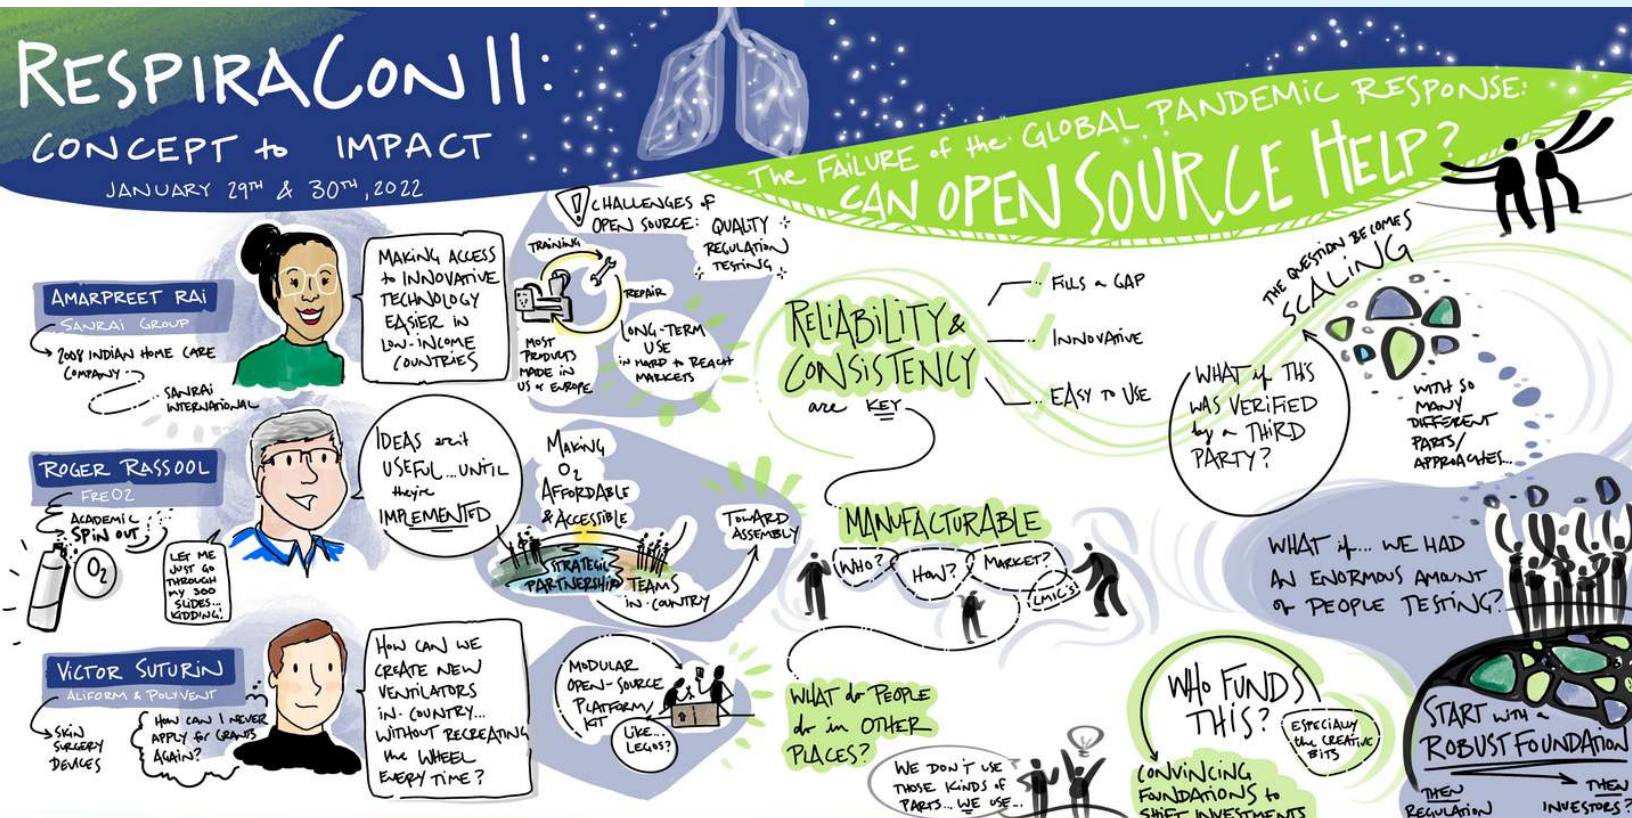 RESPIRACON II:
CONCEPT to IMPACT
JANUARY 29TH & 30TH, 2022
The FAILURE of the GLOBAL PANDEMIC RESPONSE:
CAN OPEN SOURCE HELP?
AMARPREET RAI
SANRAI GROUP
2008 INDIAN HOME CARE
COMPANY
SANRAI
INTERNATIONAL
MAKING ACCESS
to INNOVATIVE
TECHNOLOGY
EASIER IN
LOW-INCOME
COUNTRIES
! CHALLENGES of
OPEN SOURCE: QUALITY
REGULATION
TESTING
TRAINING
REPAIR
MOST
PRODUCTS
MADE IN
US or EUROPE
LONG-TERM
USE
in HARD to REACH
MARKETS
ROGER RASSOOL
FREO2
ACADEMIC
SPIN OUT
O2
LET ME
JUST GO
THROUGH
MY 300
SLIDES...
KIDDING!
IDEAS aren't
USEFUL...UNTIL
they're
IMPLEMENTED
MAKING
O2
AFFORDABLE
& ACCESSIBLE
STRATEGIC
PARTNERSHIP
TEAMS
IN-COUNTRY
TOWARD
ASSEMBLY
VICTOR SUTURIN
ALIFORM & POLYVENT
SKIN
SURGERY
DEVICES
HOW CAN I NEVER
APPLY for GRANTS
AGAIN?
HOW CAN WE
CREATE NEW
VENTILATORS
IN-COUNTRY...
WITHOUT RECREATING
the WHEEL
EVERY TIME?
MODULAR
OPEN-SOURCE
PLATFORM/
KIT
LIKE...
LEGOS?
RELIABILITY &
CONSISTENCY
are KEY
FILLS a GAP
INNOVATIVE
EASY to USE
MANUFACTURABLE
WHO?
HOW?
MARKET?
LMIC's
WHAT do PEOPLE
do in OTHER
PLACES?
WE DON'T USE
THOSE KINDS of
PARTS... WE USE...
THE QUESTION BECOMES
SCALING
WITH SO
MANY
DIFFERENT
PARTS/
APPROACHES...
WHAT if THIS
WAS VERIFIED
by a THIRD
PARTY?
WHAT if... WE HAD
AN ENORMOUS AMOUNT
of PEOPLE TESTING?
WHO FUNDS
THIS?
ESPECIALLY
the CREATIVE
BITS
CONVINCING
FOUNDATIONS to
SHIFT INVESTMENTS
START with a
ROBUST FOUNDATION
THEN
REGULATION
THEN
INVESTORS?